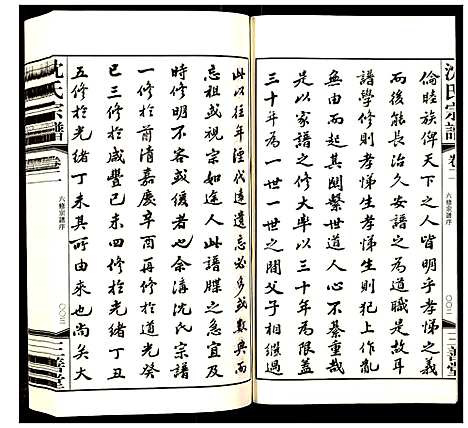 沈氏宗譜
卷二
六修宗譜序
〇〇二
三善堂
倫睦族俾天下之人皆明乎孝悌之義
而後能長治久安譜之為道職是故耳
譜學修則孝悌生孝悌生則犯上作亂
無由而起其關繫世道人心不綦重哉
是以家譜之修大率以三十年為限蓋
三十年為一世一世之間父子相繼過
此以往年湮代遠遺忘必多或數典而
忘祖或視宗如途人此譜牒之急宜及
時修明不容或緩者也余濤沈氏宗譜
一修於前清嘉慶辛酉再修於道光癸
巳三修於咸豐己未四修於光緒丁丑
五修於光緒丁未其所由來也尚矣大
沈氏宗譜
卷二
六修宗譜序
〇〇三
三善堂